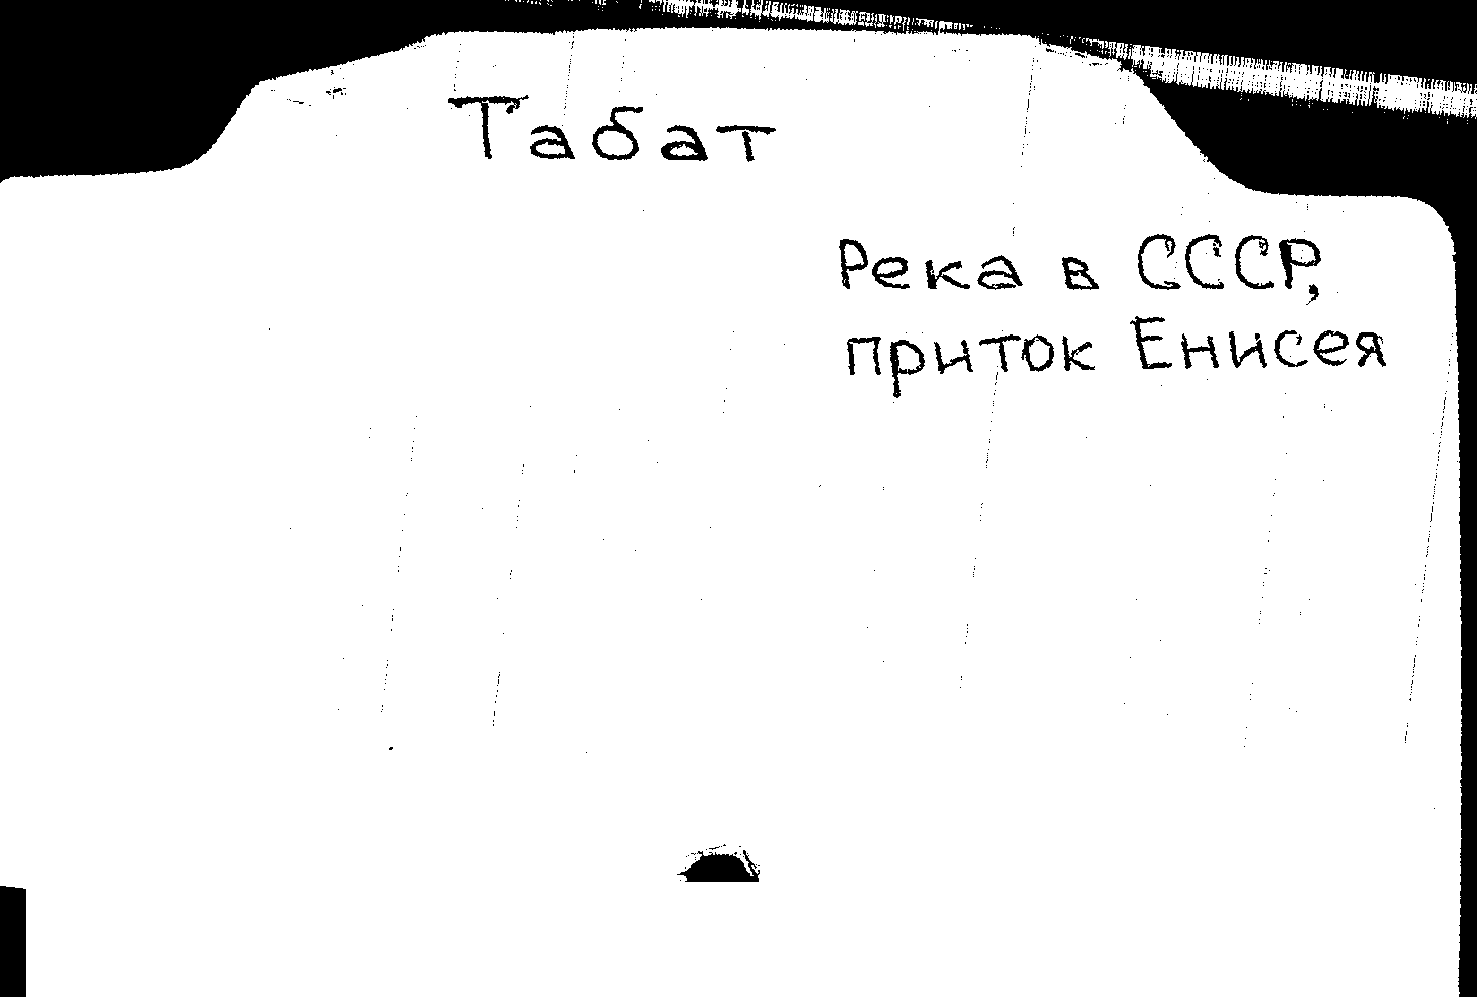 Табат
Река в СССР,
приток Енисея